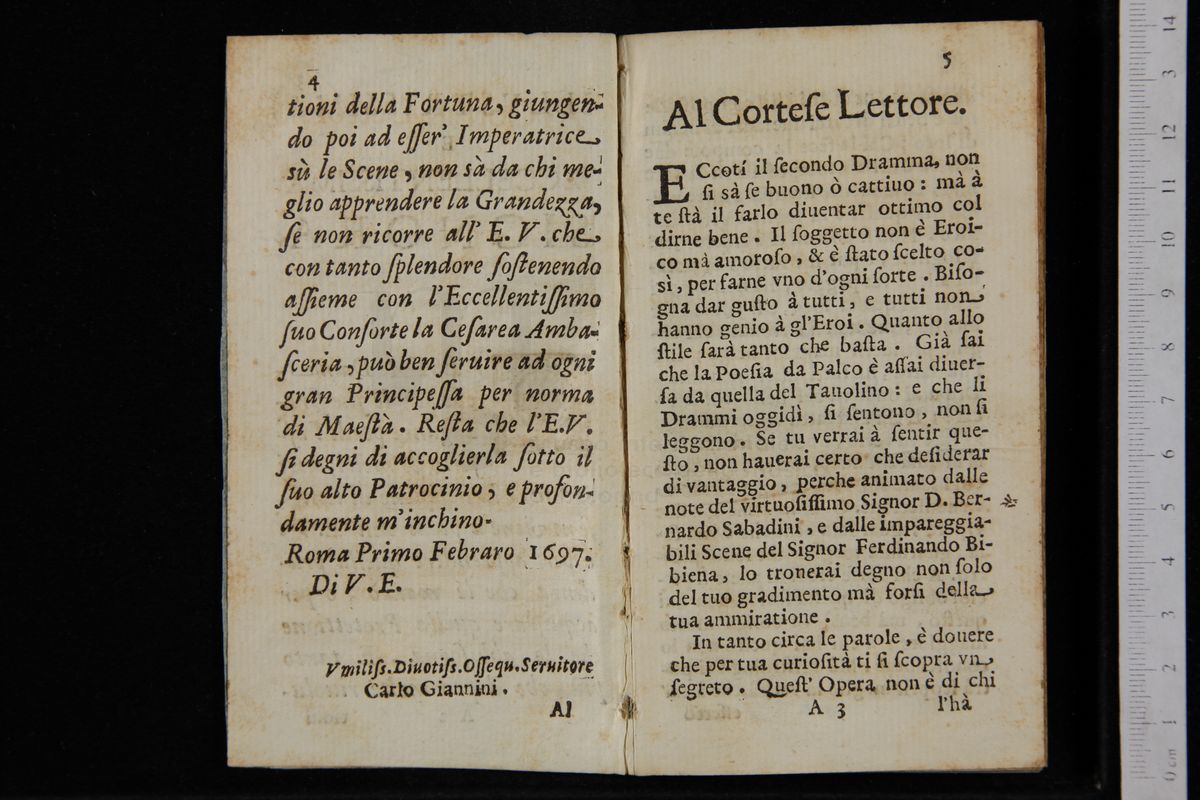 4
tioni della Fortuna, giungen-
do poi ad eſſer' Imperatrice
sù le Scene, non sà da chi me-
glio apprendere la Grandezza,
ſe non ricorre all' E. V. che
con tanto ſplendore ſoſtenendo
aſſieme con l'Eccellentiſſimo
ſuo Conſorte la Ceſarea Amba-
ſceria, può ben ſeruire ad ogni
gran Principeſſa per norma
di Maeſtà. Reſta che l'E.V.
ſi degni di accoglierla ſotto il
ſuo alto Patrocinio, e profon-
damente m'inchino.
Roma Primo Febraro 1697.
Di V. E.
Vmiliſs. Diuotiſs. Oſſequ. Seruitore
Carlo Giannini.
Al
5
Al Corteſe Lettore.
ECcotí il ſecondo Dramma, non
ſi sà ſe buono ò cattiuo: mà à
te ſtà il farlo diuentar ottimo col
dirne bene. Il ſoggetto non è Eroi-
co mà amoroſo, & è ſtato ſcelto co-
sì, per farne vno d'ogni ſorte. Biſo-
gna dar guſto à tutti, e tutti non
hanno genio à gl'Eroi. Quanto allo
ſtile ſarà tanto che baſta. Già ſai
che la Poeſia da Palco è aſſai diuer-
ſa da quella del Tauolino: e che li
Drammi oggidì, ſi ſentono, non ſi
leggono. Se tu verrai à ſentir que-
ſto, non hauerai certo che deſiderar
di vantaggio, perche animato dalle
note del virtuoſiſſimo Signor D. Ber-
nardo Sabadini, e dalle impareggia-
bili Scene del Signor Ferdinando Bi-
biena, lo tronerai degno non ſolo
del tuo gradimento mà forſi della
tua ammiratione.
In tanto circa le parole, è douere
che per tua curioſità ti ſi ſcopra vn
ſegreto. Queſt' Opera non è di chi
A 3 l'hà
0 cm 1 2 3 4 5 6 7 8 9 10 11 12 3 14